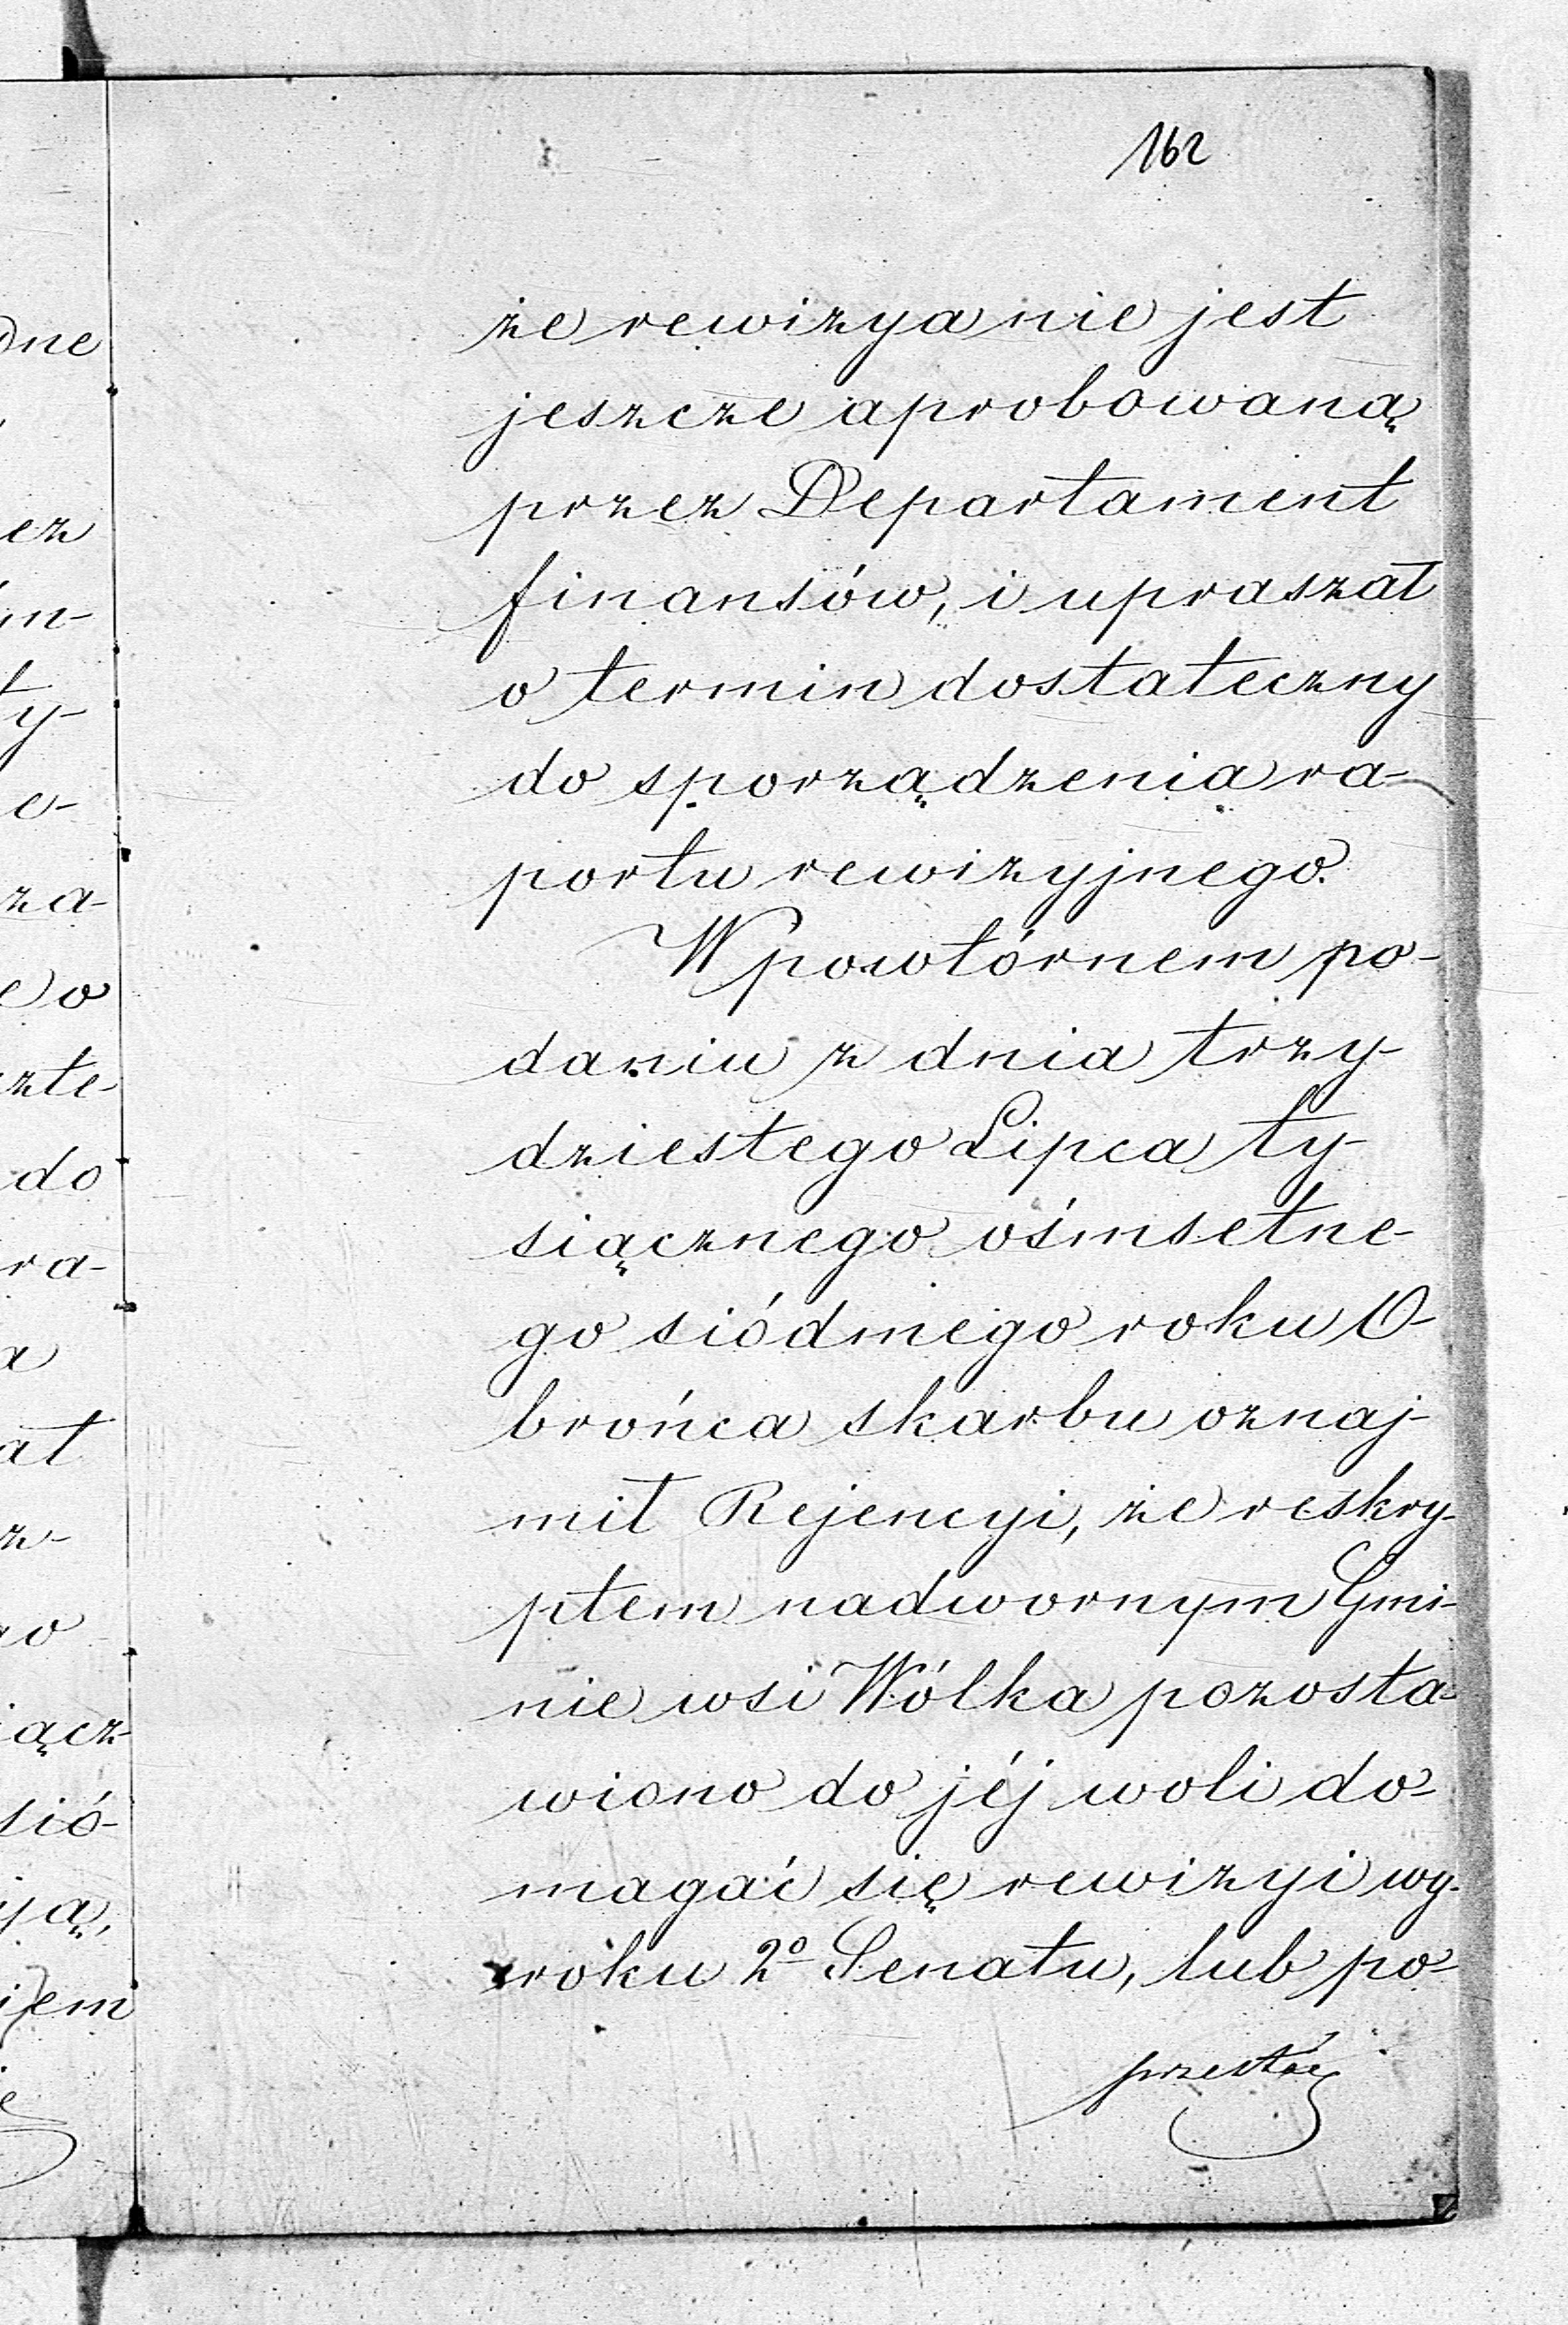 162
że rewizya nie jest
jeszcze aprobowaną
przez Departament
finansów, i upraszał
o termin dostateczny
do sporządzenia ra-
portu rewizyjnego.
W powtórnem po-
daniu z dnia trzy-
dziestego Lipca ty-
siącznego ośmsetne-
go siódmego roku O-
brońca skarbu oznaj-
mił Rejencyi, że reskry-
ptem nadwornym Gmi-
nie wsi Wólka pozosta-
wiono do jéj woli do-
magać się rewizyi wy-
roku 2º Senatu, lub po-
przestać
dne
ez
m-
ty-
e-
za-
e o
zte-
do
ra-
a
ał
z-
go
iącz-
sió-
ją,
iem
ie